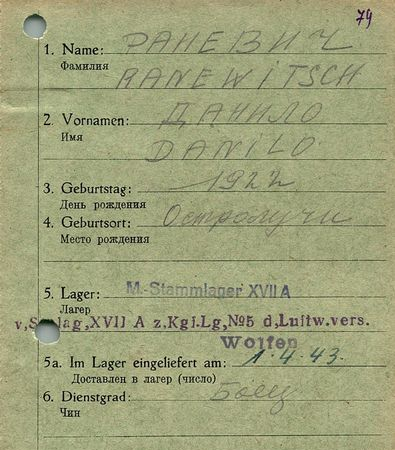 74
1. Name: РАНЕВИЧ
Фамилия
RANEWITSCH
2. Vornamen: ДАНИЛО
Имя
DANILO
3. Geburtstag: 1922
День рождения
4. Geburtsort: Остролучи
Место рождения
5. Lager: M.-Stammlager XVII A
Лагерь
v, Stalag, XVII A z.Kgf.Lg, №5 d, Luftw.vers.
Wolfen
5a. Im Lager eingeliefert am: 1.4.43.
Доставлен в лагерь (число)
6. Dienstgrad: Боец
Чин